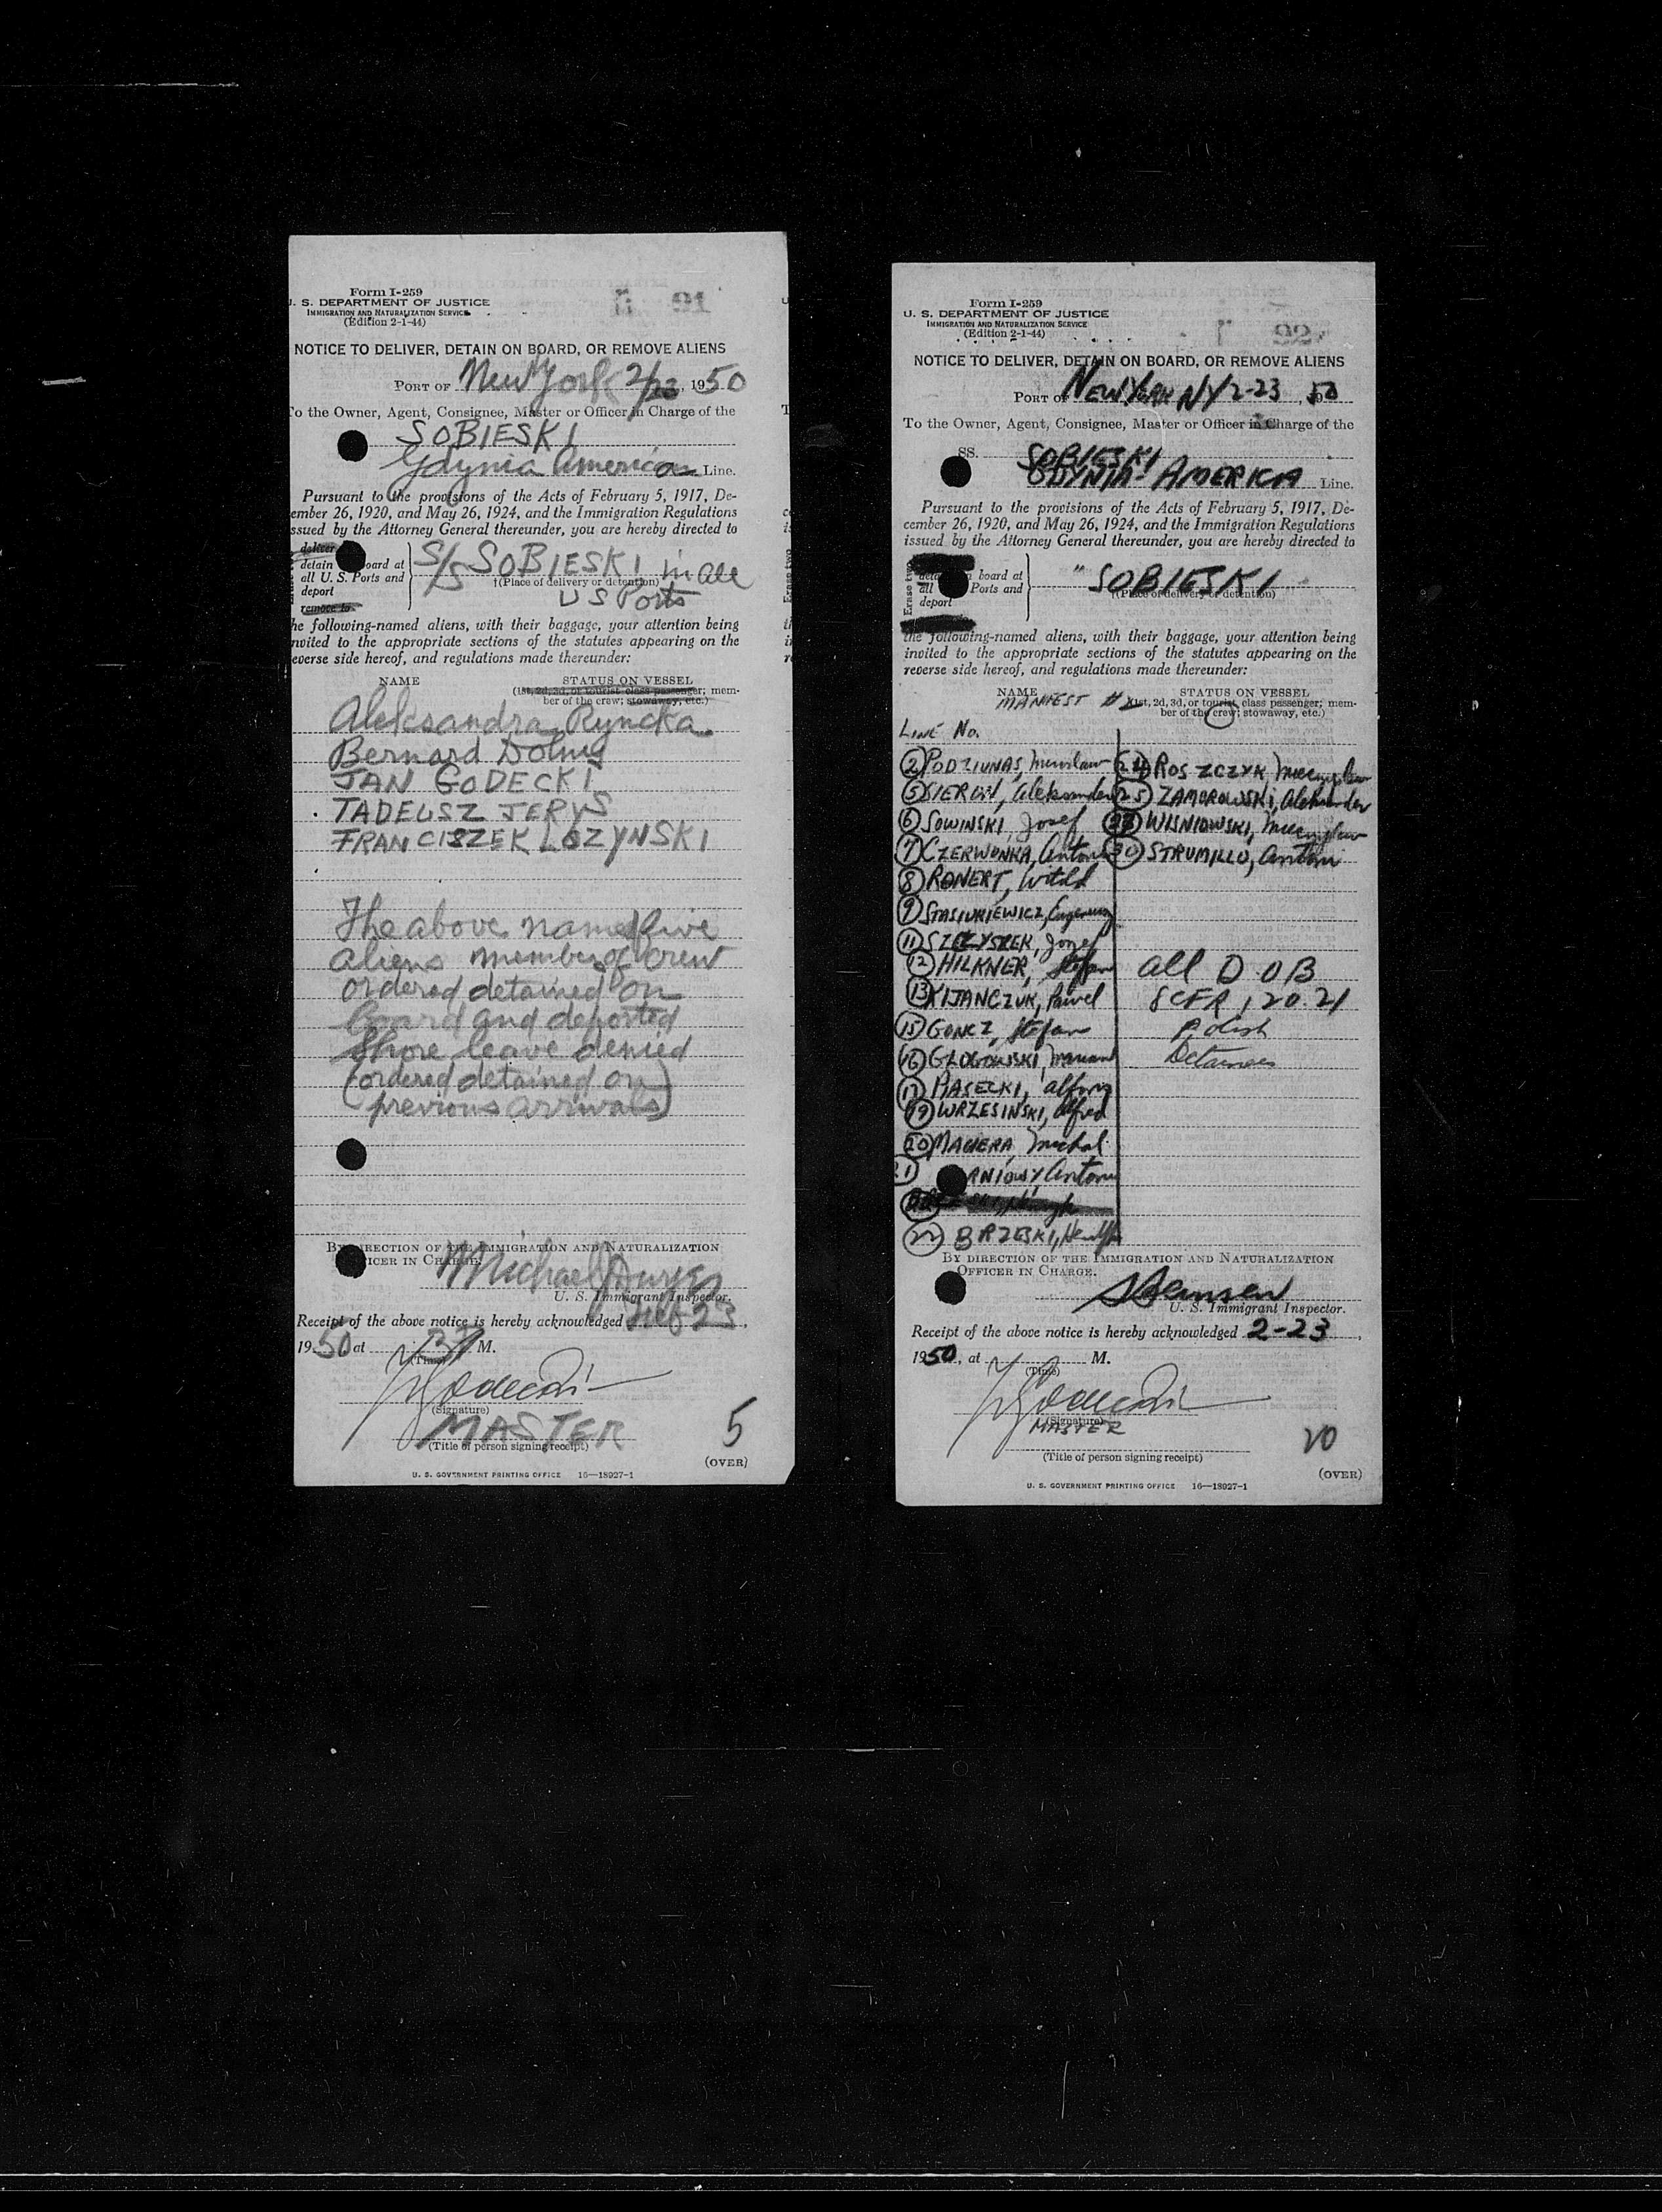 Form I-259
U. S. DEPARTMENT OF JUSTICE
IMMIGRATION AND NATURALIZATION SERVICE
(Edition 2-1-44)
91
NOTICE TO DELIVER, DETAIN ON BOARD, OR REMOVE ALIENS
PORT OF New York 2/23, 1950
To the Owner, Agent, Consignee, Master or Officer in Charge of the
SOBIESKI
Gdynia American Line.
Pursuant to the provisions of the Acts of February 5, 1917, De-
ember 26, 1920, and May 26, 1924, and the Immigration Regulations
ssued by the Attorney General thereunder, you are hereby directed to
deliver
detain oard at
all U. S. Ports and
deport
remove to
S/S SOBIESKI in all
†(Place of delivery or detention)
US Ports
he following-named aliens, with their baggage, your attention being
nvited to the appropriate sections of the statutes appearing on the
everse side hereof, and regulations made thereunder:
NAME STATUS ON VESSEL
(1st, 2d, 3d, or tourist class passenger; mem-
ber of the crew; stowaway, etc.)
AleksandraRyncka
Bernard Dolny
JAN GODECKI
TADEUSZ JERYS
FRANCISZEK LOZYNSKI
The above named five
aliens member of crew
ordered detained on
board and deported
Shore leave denied
(ordered detained on
previous arrivals)
BY DIRECTION OF THE IMMIGRATION AND NATURALIZATION
ICER IN CHARGE.
Michael
U. S. Immigrant Inspector.
Receipt of the above notice is hereby acknowledged Feb 23,
1950 at M.
(Time)
(Signature)
MASTER
(Title of person signing receipt)
5
(OVER)
U. S. GOVERNMENT PRINTING OFFICE 16—18027-1
Form I-259
U. S. DEPARTMENT OF JUSTICE
IMMIGRATION AND NATURALIZATION SERVICE
(Edition 2-1-44)
92
NOTICE TO DELIVER, DETAIN ON BOARD, OR REMOVE ALIENS
PORT OF NEW YORK NY 2-23, 1950
To the Owner, Agent, Consignee, Master or Officer in Charge of the
SS. SOBIESKI
GDYNIA-AMERICA Line.
Pursuant to the provisions of the Acts of February 5, 1917, De-
cember 26, 1920, and May 26, 1924, and the Immigration Regulations
issued by the Attorney General thereunder, you are hereby directed to
Erase two
board at
all Ports and
deport
" SOBIESKI
†(Place of delivery or detention)
the following-named aliens, with their baggage, your attention being
invited to the appropriate sections of the statutes appearing on the
reverse side hereof, and regulations made thereunder:
NAME STATUS ON VESSEL
MANIFEST # 2 (1st, 2d, 3d, or tourist class passenger; mem-
ber of the crew; stowaway, etc.)
LINE No.
2 PODZIUNAS, Miroslaw
5 SIERON, Aleksander
6 SOWINSKI, Josef
7 CZERWONKA, Antoni
8 RONERT, Witold
9 STASIUKIEWICZ, Eugeniusz
11 SZCZYSZEK, Jozef
12 HILKNER, Stefan
13 KIJANCZUK, Pawel
15 GONCZ, Stefan
16 GLOGOWSKI, Marian
17 PIASECKI, Alfons
19 WRZESINSKI, Alfred
20 MACIERA, Michal
21 ANIOWY, Antoni
22 BRZESKI, Henryk
24 ROSZCZYK, Mieczyslaw
25 ZAMOROWSKI, Aleksander
WISNIOWSKI, Mieczyslaw
30 STRUMILLO, Antoni
All D.O.B
8 CFR 120.21
Polish
Detainees
BY DIRECTION OF THE IMMIGRATION AND NATURALIZATION
OFFICER IN CHARGE.
U. S. Immigrant Inspector.
Receipt of the above notice is hereby acknowledged 2-23,
1950, at M.
(Time)
(Signature)
MASTER
(Title of person signing receipt)
20
(OVER)
U. S. GOVERNMENT PRINTING OFFICE 16—18027-1